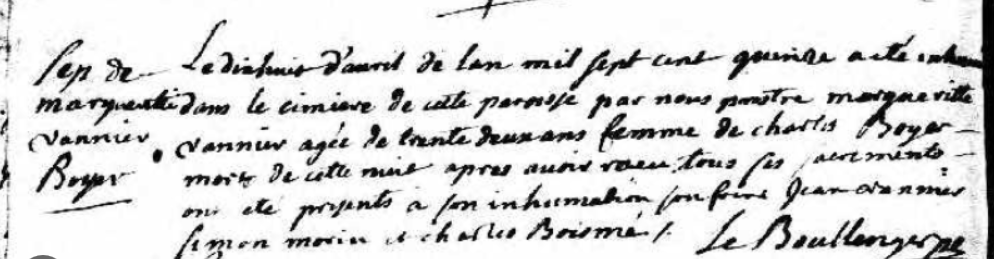 Sep. de
marguerite
vannier
Boyer
Le dixhuit d'avril de lan mil sept cent quinze a eté inhumé
dans le cimiere de cette paroisse par nous prestre margueritte
vannier agée de trente deux ans femme de charles Boyer
morte de cette nuit apres avoir receu tous ses sacrements
ont eté presents a son inhumation son frere Jean vannier
simon morin et charles Boismé /. Le Boullenger ptre